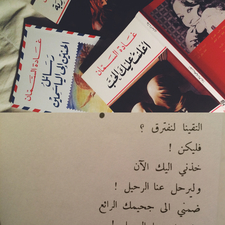 غادة السمان
أعلنت عليك الحب
غادة السمان
رسائل
الحنين إلى الياسمين
التقينا لنفترق ؟
فليكن !
خذني اليك الآن
وليرحل عنا الرحيل !
ضمني الى جحيمك الرائع